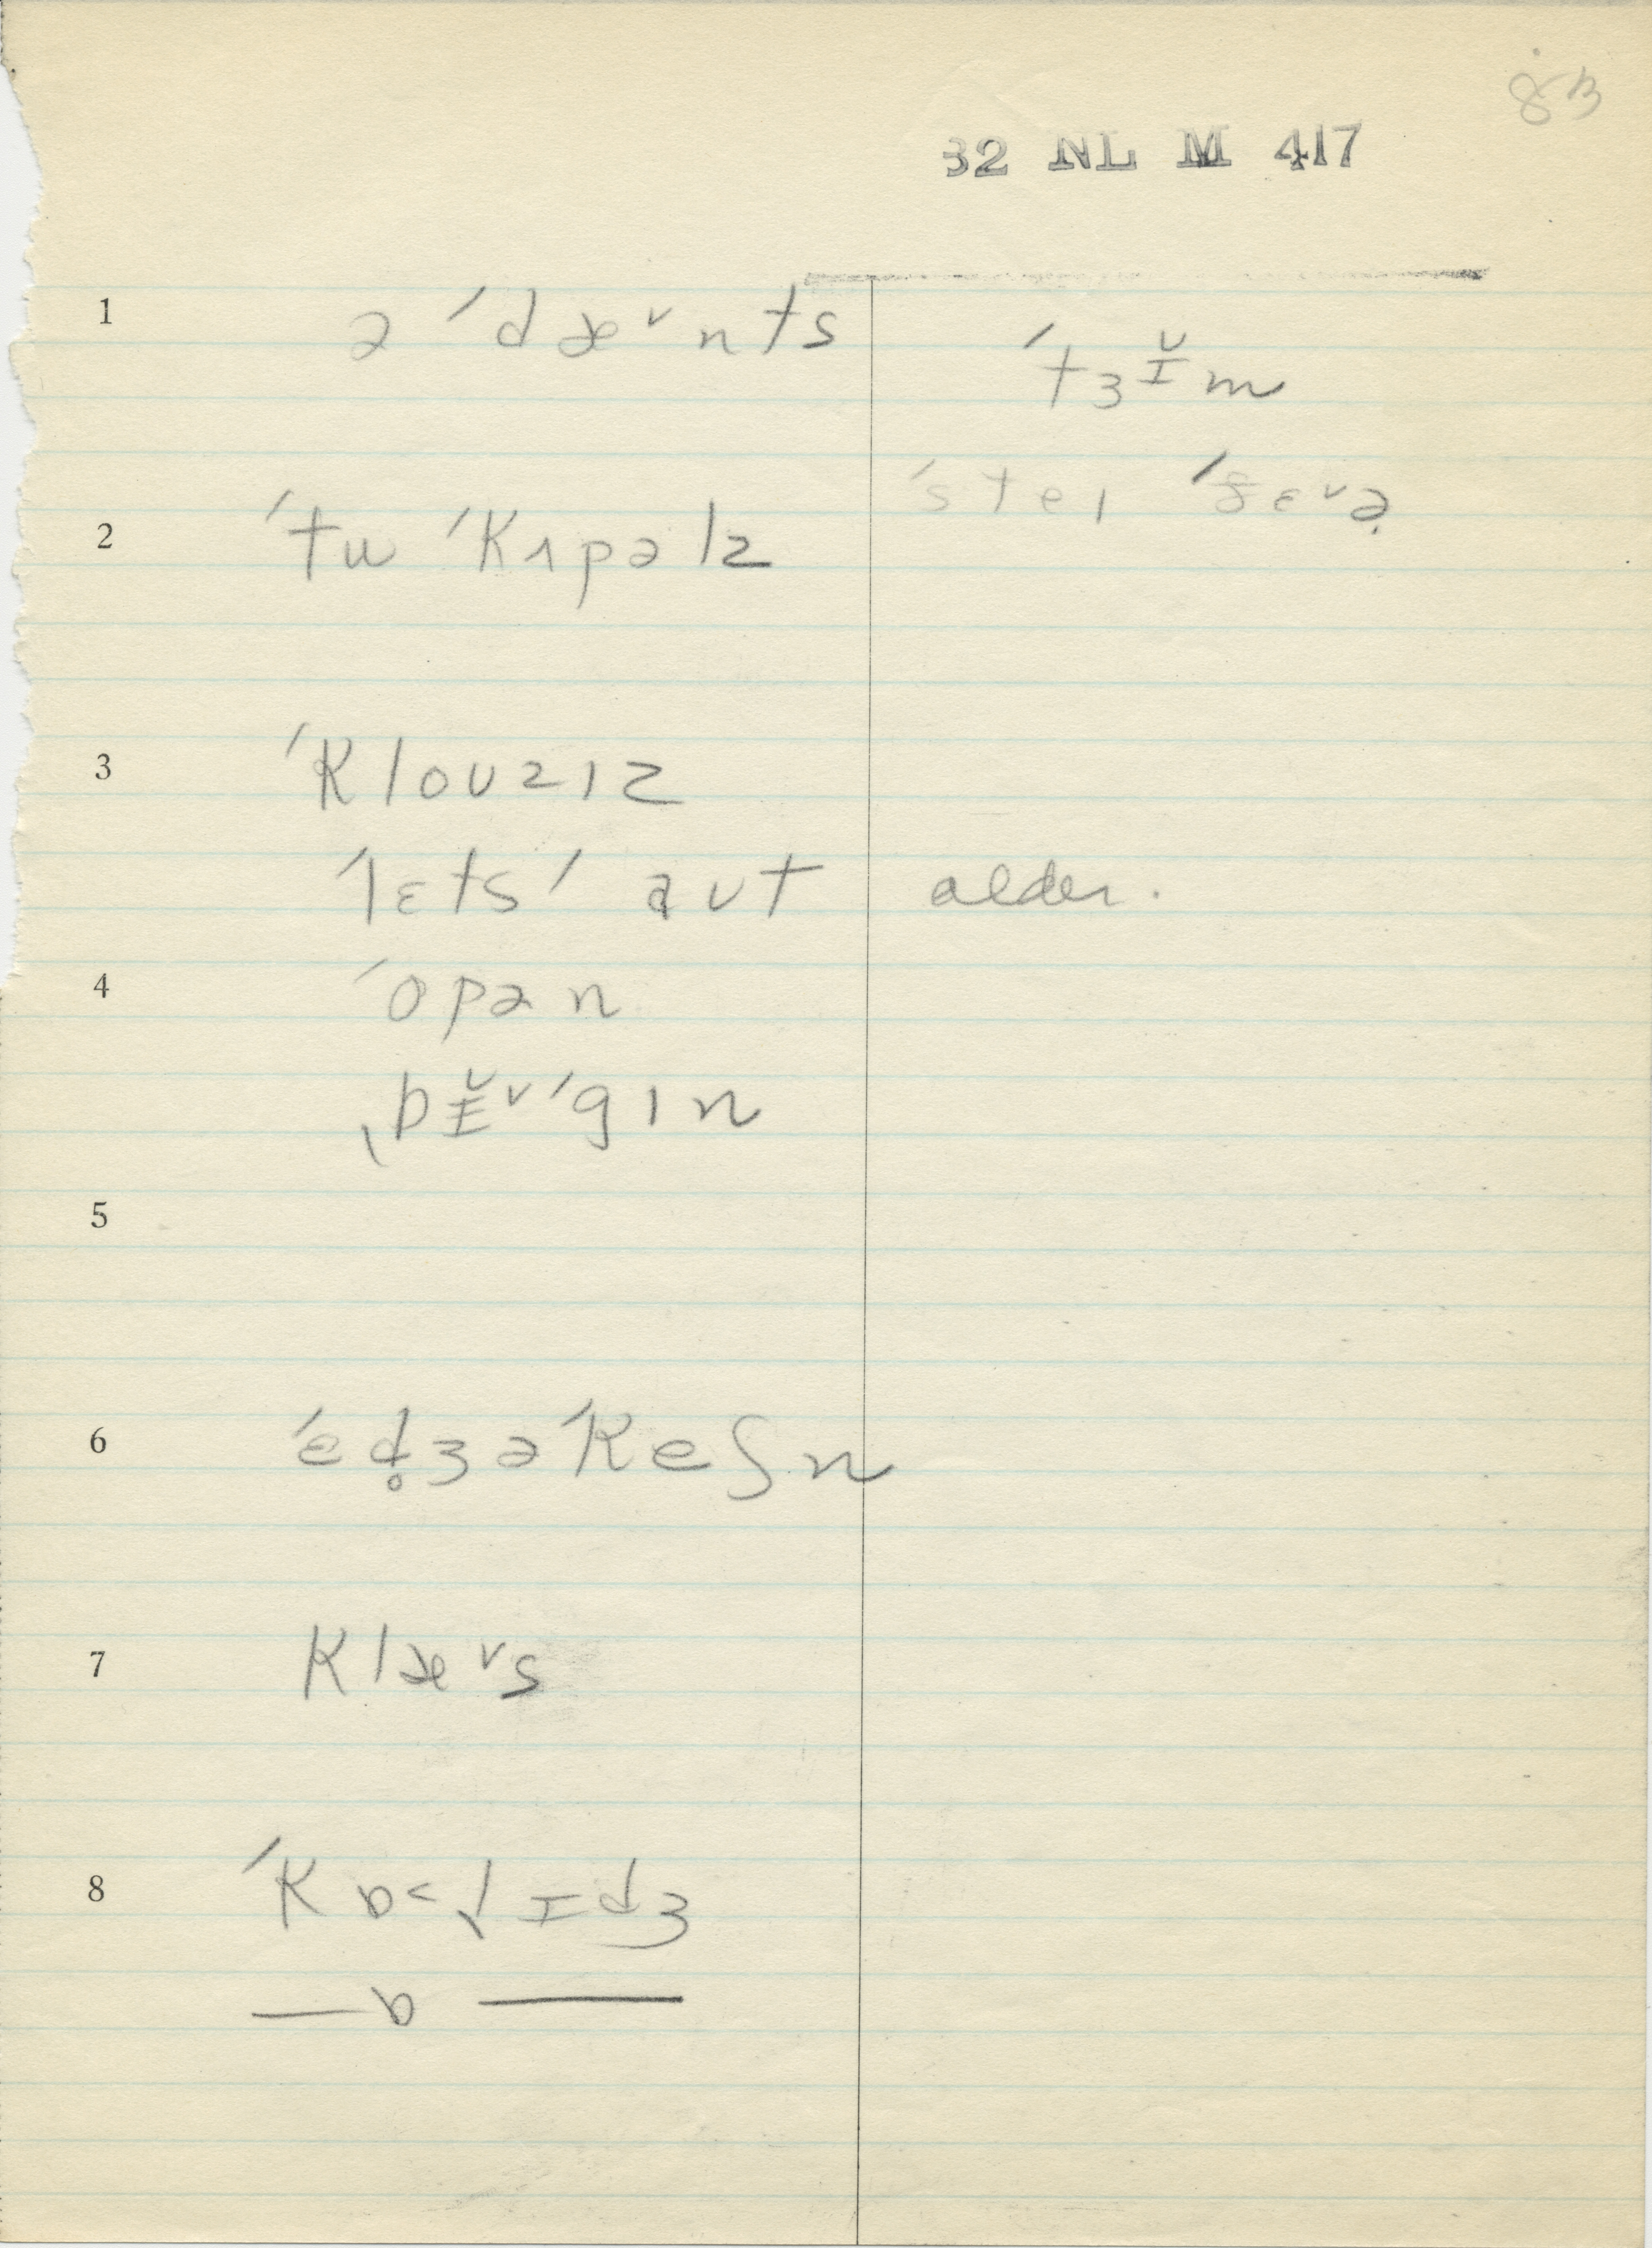 83
32 NL M 417
1 ə ˈdæ˅nts
ˈtɜɪ̆m
2 ˈtu ˈkʌpəlz
ˈsteɪ ˈðɛ˅ə̣
3 ˈklouzɪz
ˈlɛtsˈ aut
older.
4 ˈopən
ˌbɪ̵̆˅ˈgɪn
5
6 ˈɛd̥ʒəˈkeʃn
7 klæ˅s
8 ˈkɒ˂lɪdʒ
— ɒ —